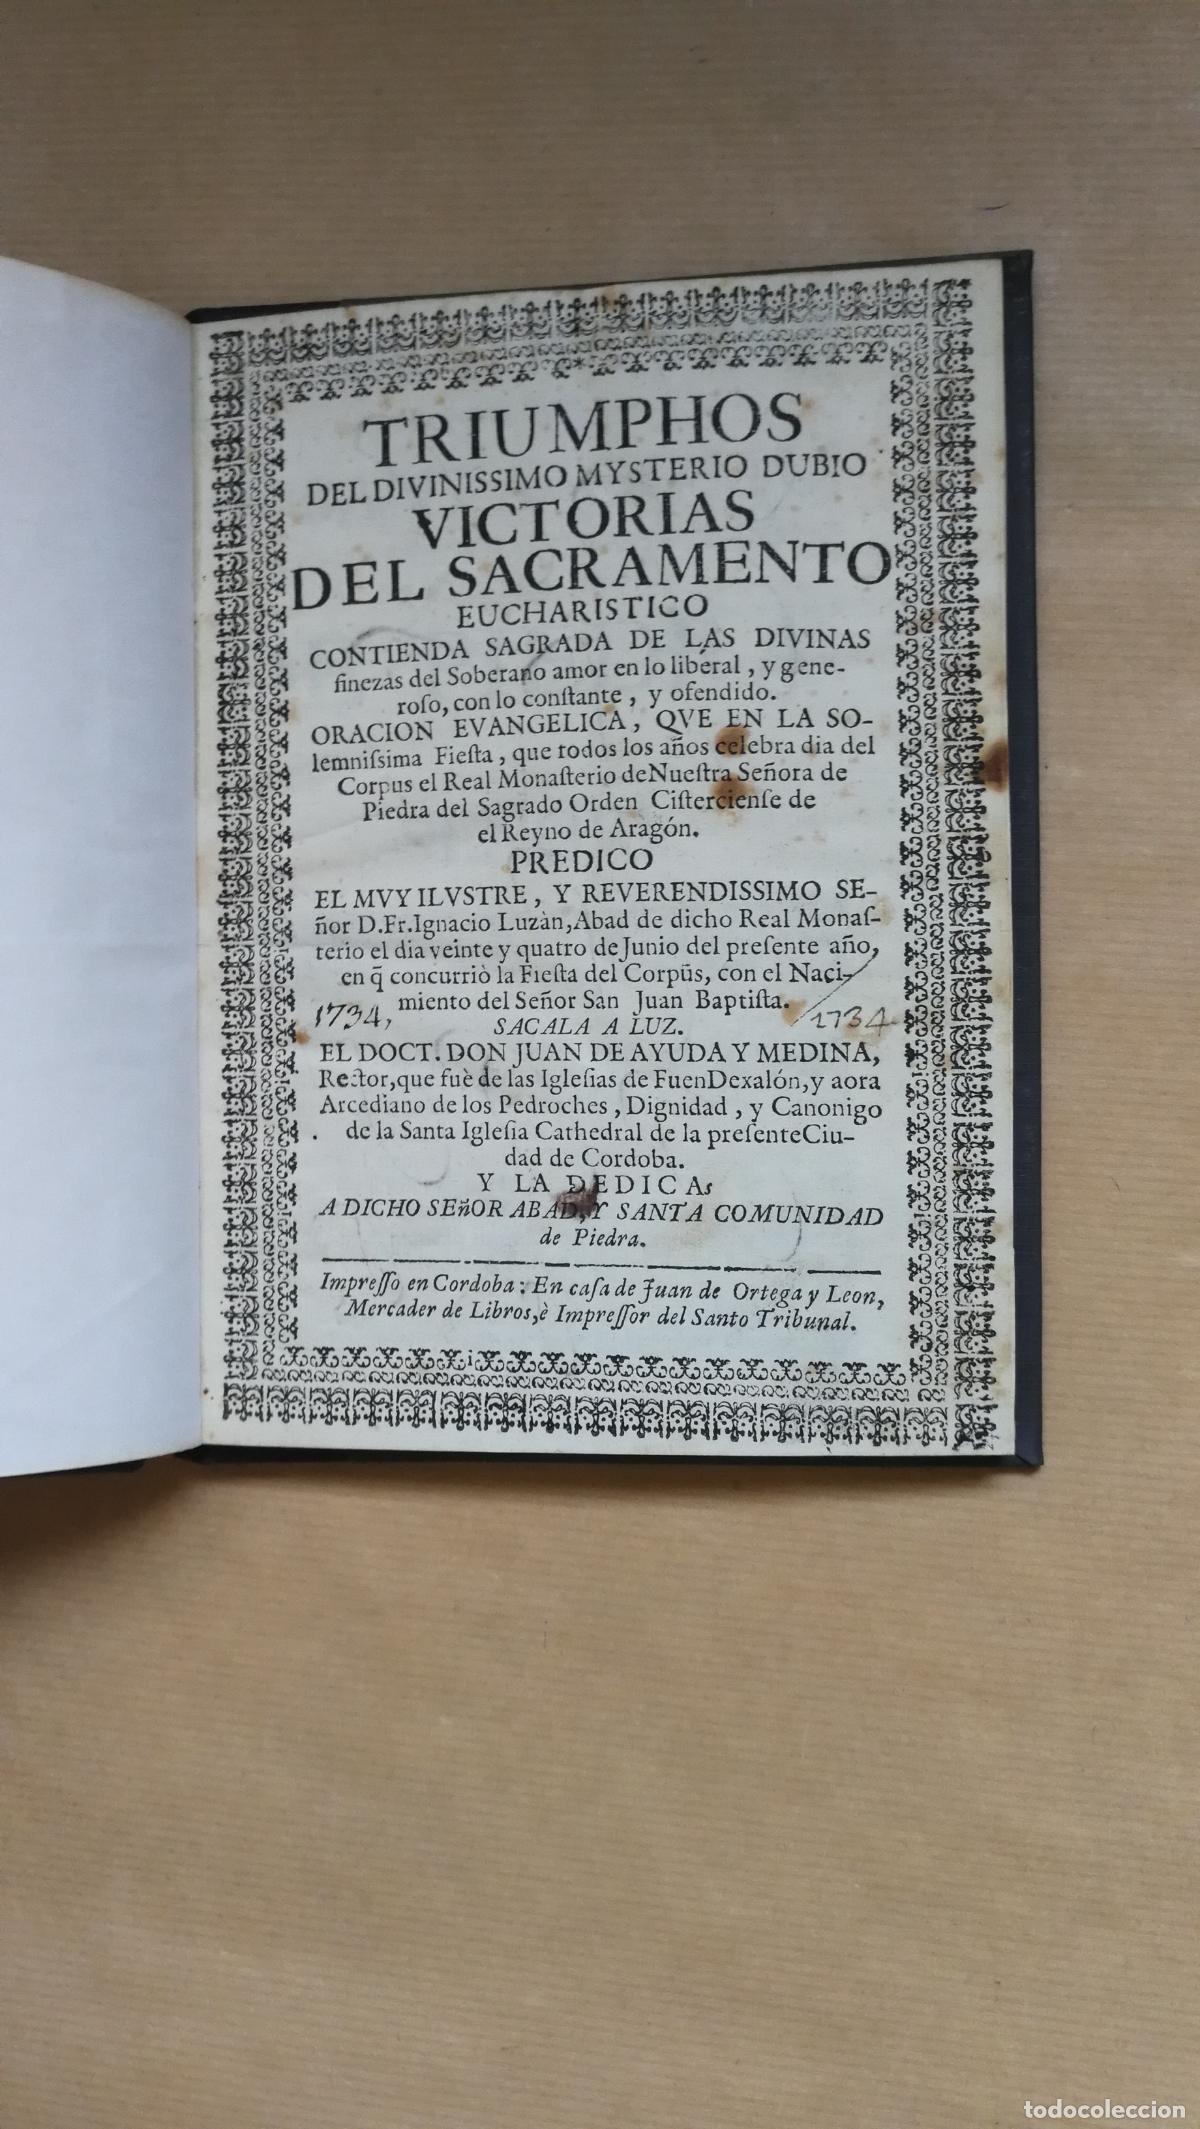 TRIUMPHOS
DEL DIVINISSIMO MYSTERIO DUBIO
VICTORIAS
DEL SACRAMENTO
EUCHARISTICO
CONTIENDA SAGRADA DE LAS DIVINAS
finezas del Soberano amor en lo liberal, y gene-
roſo, con lo conſtante, y ofendido.
ORACION EVANGELICA, QVE EN LA SO-
lemniſsima Fieſta, que todos los años celebra dia del
Corpus el Real Monaſterio de Nueſtra Señora de
Piedra del Sagrado Orden Ciſtercienſe de
el Reyno de Aragón.
PREDICO
EL MVY ILVSTRE, Y REVERENDISSIMO SE-
ñor D. Fr. Ignacio Luzàn, Abad de dicho Real Monaſ-
terio el dia veinte y quatro de Junio del preſente año,
en q̃ concurriò la Fieſta del Corpũs, con el Naci-
miento del Señor San Juan Baptiſta.
1734, 1734
SACALA A LUZ.
EL DOCT. DON JUAN DE AYUDA Y MEDINA,
Rector, que fuè de las Igleſias de FuenDexalón, y aora
Arcediano de los Pedroches, Dignidad, y Canonigo
de la Santa Igleſia Cathedral de la preſente Ciu-
dad de Cordoba.
Y LA DEDICAs
A DICHO SEñOR ABAD, Y SANTA COMUNIDAD
de Piedra.
Impreſſo en Cordoba: En caſa de Juan de Ortega y Leon,
Mercader de Libros, è Impreſſor del Santo Tribunal.
todocoleccion